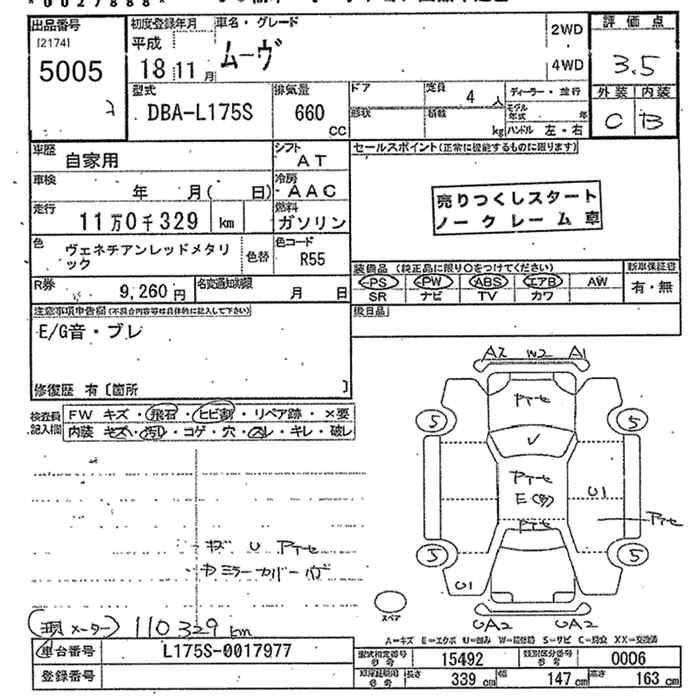 *0027888*
出品番号 初度登録年月 車名・グレード 2WD 評価点
[2174] 平成 ムーヴ
5005 18 11月 4WD 3.5
型式 排気量 ドア 定員 4人 ディーラー・並行 外装 内装
2 DBA-L175S 660 CC 形状 積載 kg モデル年式 年 C B
ハンドル 左・右
車歴 自家用 シフト AT セールスポイント(正常に機能するものに限ります)
車検 年 月( 日) 冷房 AAC 売りつくしスタート
走行 11万0千329 km 燃料 ガソリン ノークレーム車
色 ヴェネチアンレッドメタリック 色替 色コード R55
装備品 (純正品に限り○をつけてください) 新車保証書
PS PW ABS エアB AW 有・無
SR ナビ TV カワ
R券 9,260円 名変通知期限 月 日
注意事項申告欄(不具合内容等は具体的に記入して下さい) 後日品
E/G音・ブレ
修復歴 有〔箇所 〕
検査員記入欄 FW キズ・飛石・ヒビ割・リペア跡・×要
内装 キズ・汚れ・コゲ・穴・スレ・キレ・破レ
A2 W2 A1
アトセ
5 5
アトセ
E(多) U1
アトセ アトセ
5 5
U1
キズ U アトセ
スペア UA2 UA2
現メーター 110329 km
A=キズ E=エクボ U=凹み W=補修跡 S=サビ C=腐食 XX=交換済
車台番号 L175S-0017977 型式指定番号 参考 15492 類別区分番号 参考 0006
登録番号 長さ 339 cm 幅 147 cm 高さ 163 cm